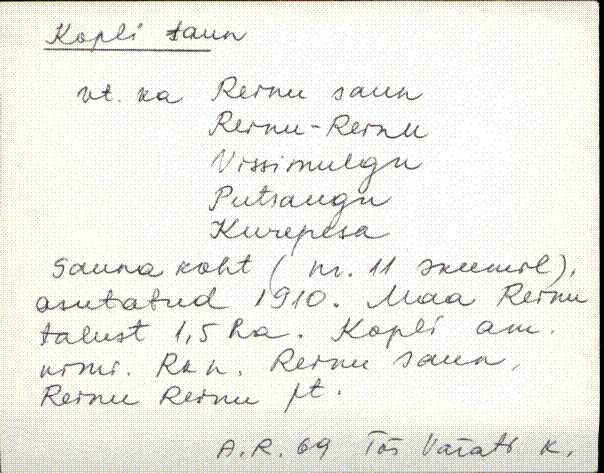 Kopli saun
vt. ka Reinu saun
Reinu-Reinu
Nissimulgu
Putsaugu
Kurepesa
Sauna koht (nr. 11 skeemil),
asutatud 1910. Maa Reinu
talust 1,5 ha. Kopli am.
nimi. Rkn. Reinu saun,
Reinu Reinu pt.
A.R. 69 Tõs Varati k.